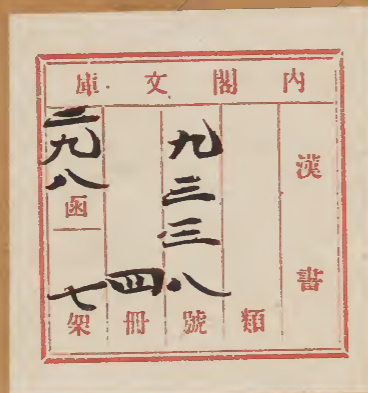 内閣文庫
漢書
類
九三三八號
四冊
二九八函
七架